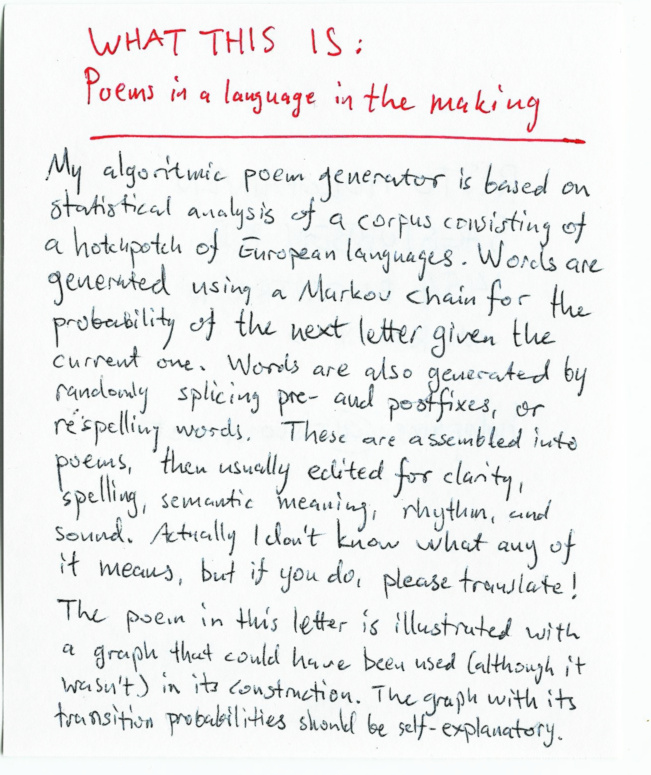 WHAT THIS IS:
Poems in a language in the making
My algoritmic poem generator is based on
statistical analysis of a corpus consisting of
a hotchpotch of European languages. Words are
generated using a Markov chain for the
probability of the next letter given the
current one. Words are also generated by
randomly splicing pre- and postfixes, or
re'spelling words. These are assembled into
poems, then usually edited for clarity,
spelling, semantic meaning, rhythm, and
sound. Actually I don't know what any of
it means, but if you do, please translate!
The poem in this letter is illustrated with
a graph that could have been used (although it
wasn't) in its construction. The graph with its
transition probabilities should be self-explanatory.